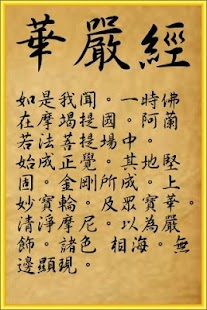 華嚴經
如是我聞。一時佛
在摩竭提國。阿蘭
若法菩提場中。
始成正覺。其地堅
固。金剛所成。上
妙寶輪。及眾寶華。
清淨摩尼。以為嚴
飾。諸色 相海。無
邊顯現。